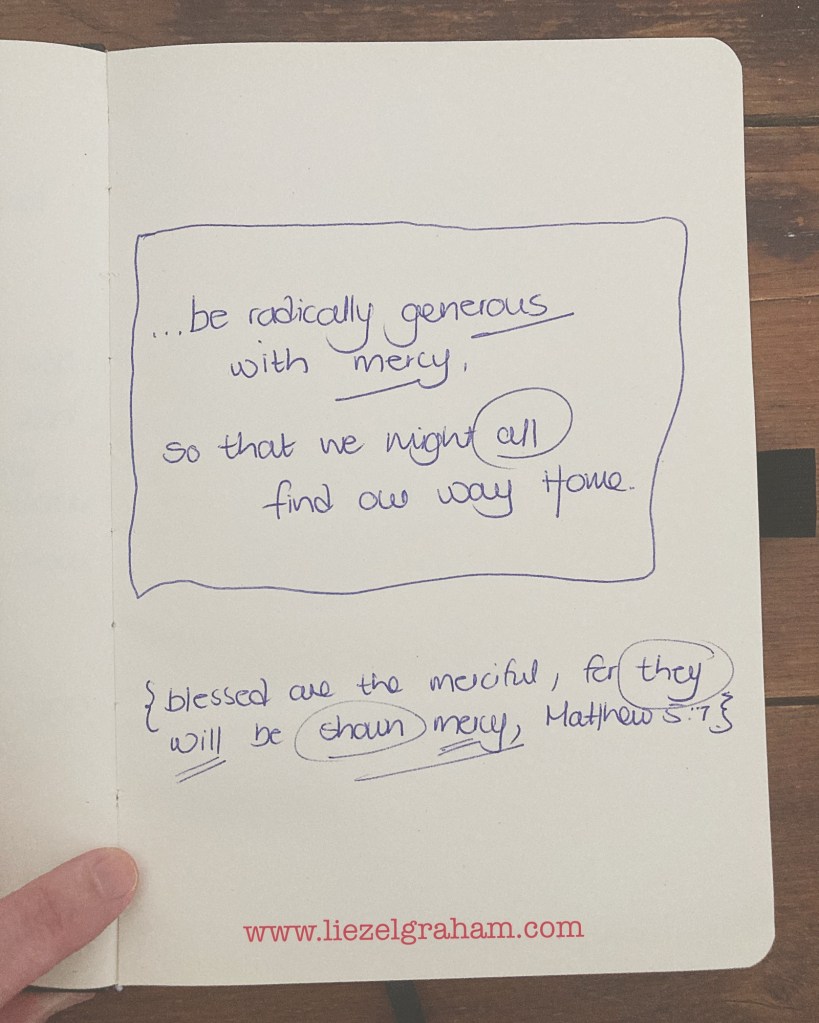 ...be radically generous
with mercy,
so that we might all
find our way Home.
{blessed are the merciful, for they
will be shown mercy, Matthew 5:7}
www.liezelgraham.com